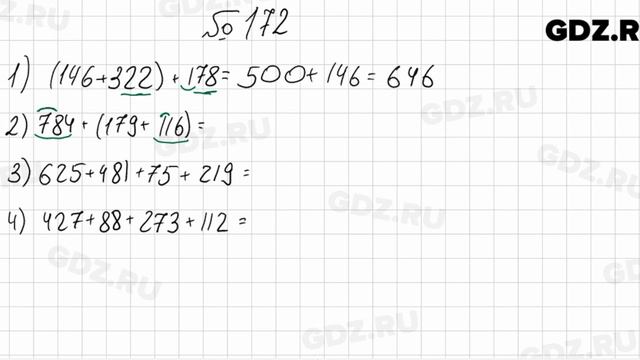 № 172
GDZ.R
1) (146+322) + 178 = 500 + 146 = 646
2) 784 + (179 + 116) =
3) 625 + 481 + 75 + 219 =
4) 427 + 88 + 273 + 112 =
GDZ.RU
GDZ.RU
GDZ.RU
GDZ.RU
GDZ.RU
GDZ.RU